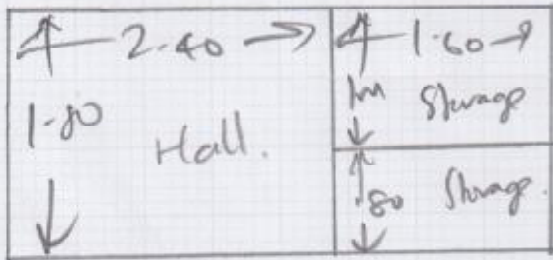 2.40
1.80
Hall.
1.60
1m Storage
.80 Storage.